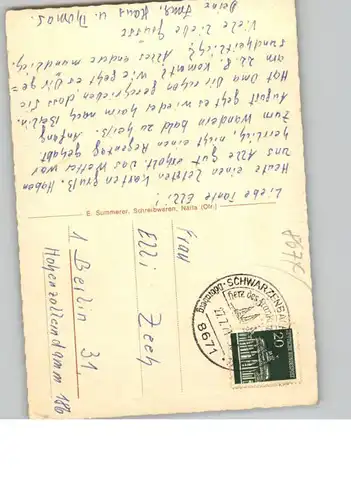 Liebe Tante Elli!
Heute einen letzten Kartengruß. Haben
uns alle gut erholt. Das Wetter war
herrlich, nicht einen Regentag gehabt.
Zum Wandern bald zu heiß. Anfang
August geht es wieder heim nach Berlin.
Hat Oma Dir schon geschrieben, dass sie
am 22. 8. kommt? Wie geht es Dir ge=
sundheitlich? Alles andere mündlich,
Viele liebe Grüße
Deine Hans u. Thomas
E. Summerer, Schreibwaren, Naila (Ofr.)
Frau
Elli Zeeh
1 Berlin 31
Hohenzollerndamm 186
8671
SCHWARZENBACH
Herz des
20
DEUTSCHE BUNDESPOST